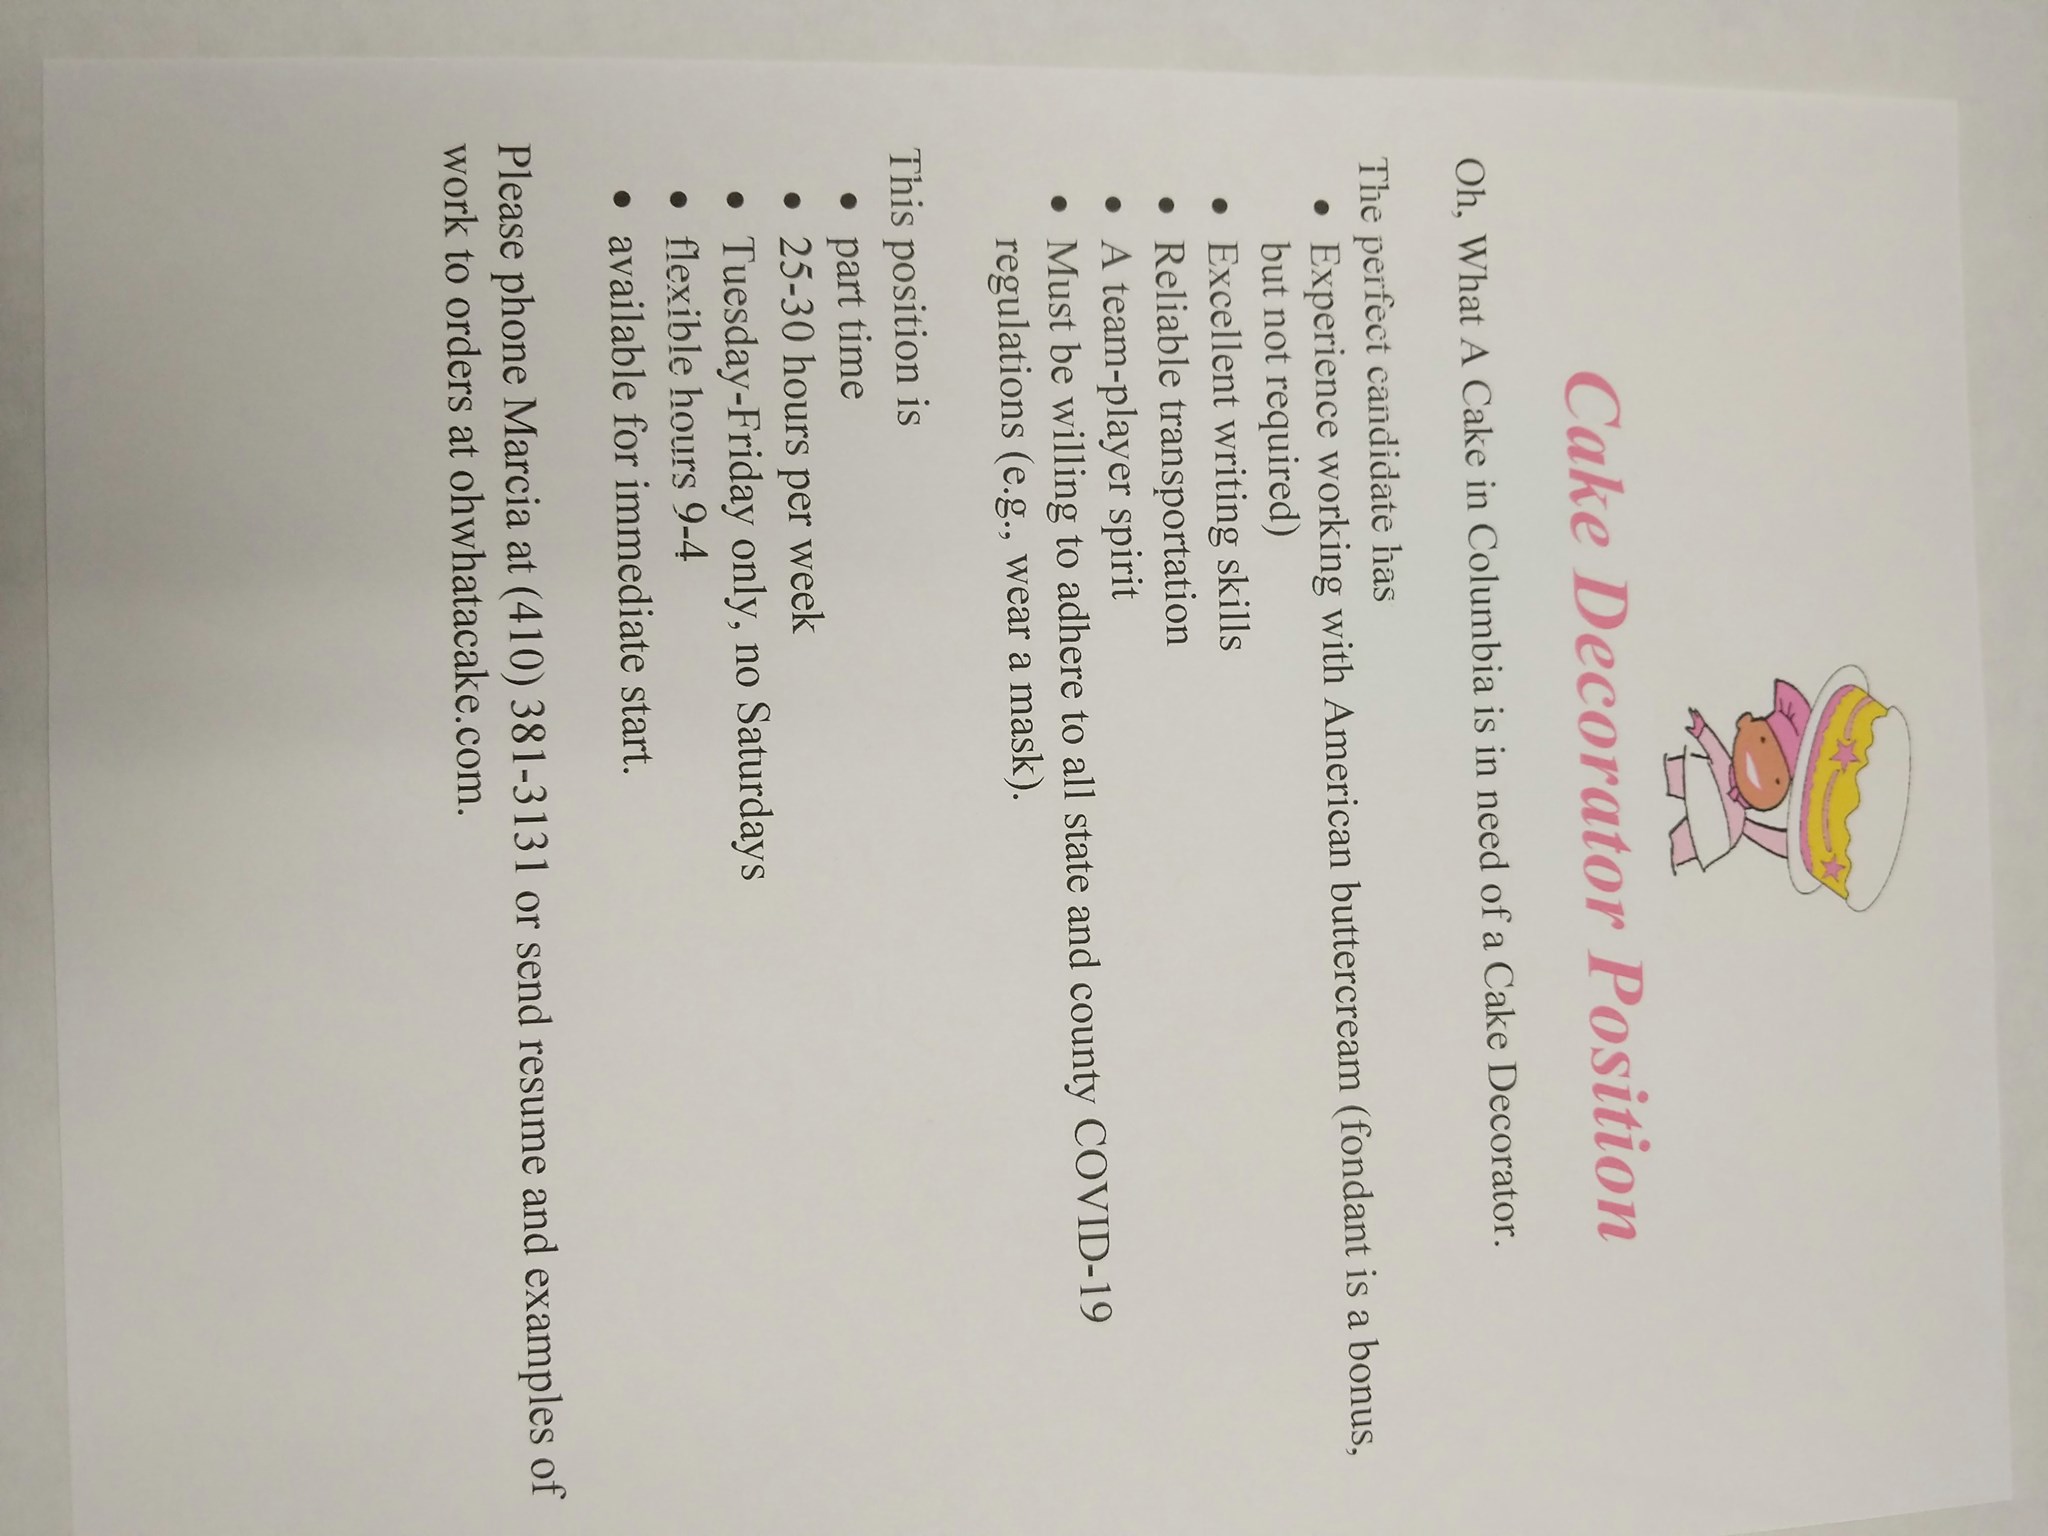 Cake Decorator Position
Oh, What A Cake in Columbia is in need of a Cake Decorator.
The perfect candidate has
• Experience working with American buttercream (fondant is a bonus,
but not required)
• Excellent writing skills
• Reliable transportation
• A team-player spirit
• Must be willing to adhere to all state and county COVID-19
regulations (e.g., wear a mask).
This position is
• part time
• 25-30 hours per week
• Tuesday-Friday only, no Saturdays
• flexible hours 9-4
• available for immediate start.
Please phone Marcia at (410) 381-3131 or send resume and examples of
work to orders at ohwhatacake.com.